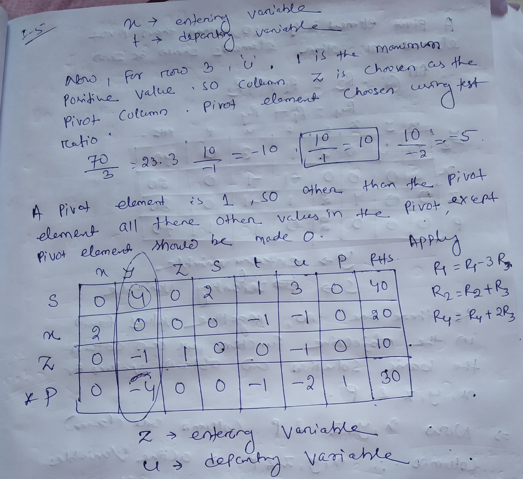 x → entering variable
t → departing variable
Now, for row 3, 'u'. 1 is the maximum
positive value, so column Z is chosen as the
Pivot Column. Pivot element chosen using test
ratio.
70/3 = 23.3 10/-1 = -10, 10/1 = 10 10/-2 = -5
A pivot element is 1, so other than the pivot
element all there other values in the pivot, except
pivot element should be made 0.
Apply
x y Z S t u P RHS
S 0 4 0 2 1 3 0 40 R1 = R1-3R3
x 2 0 0 0 -1 -1 0 20 R2 = R2+R3
Z 0 -1 1 0 0 -1 0 10 R4 = R4+2R3
* P 0 -4 0 0 -1 -2 1 30
Z → entering variable
u → departing variable